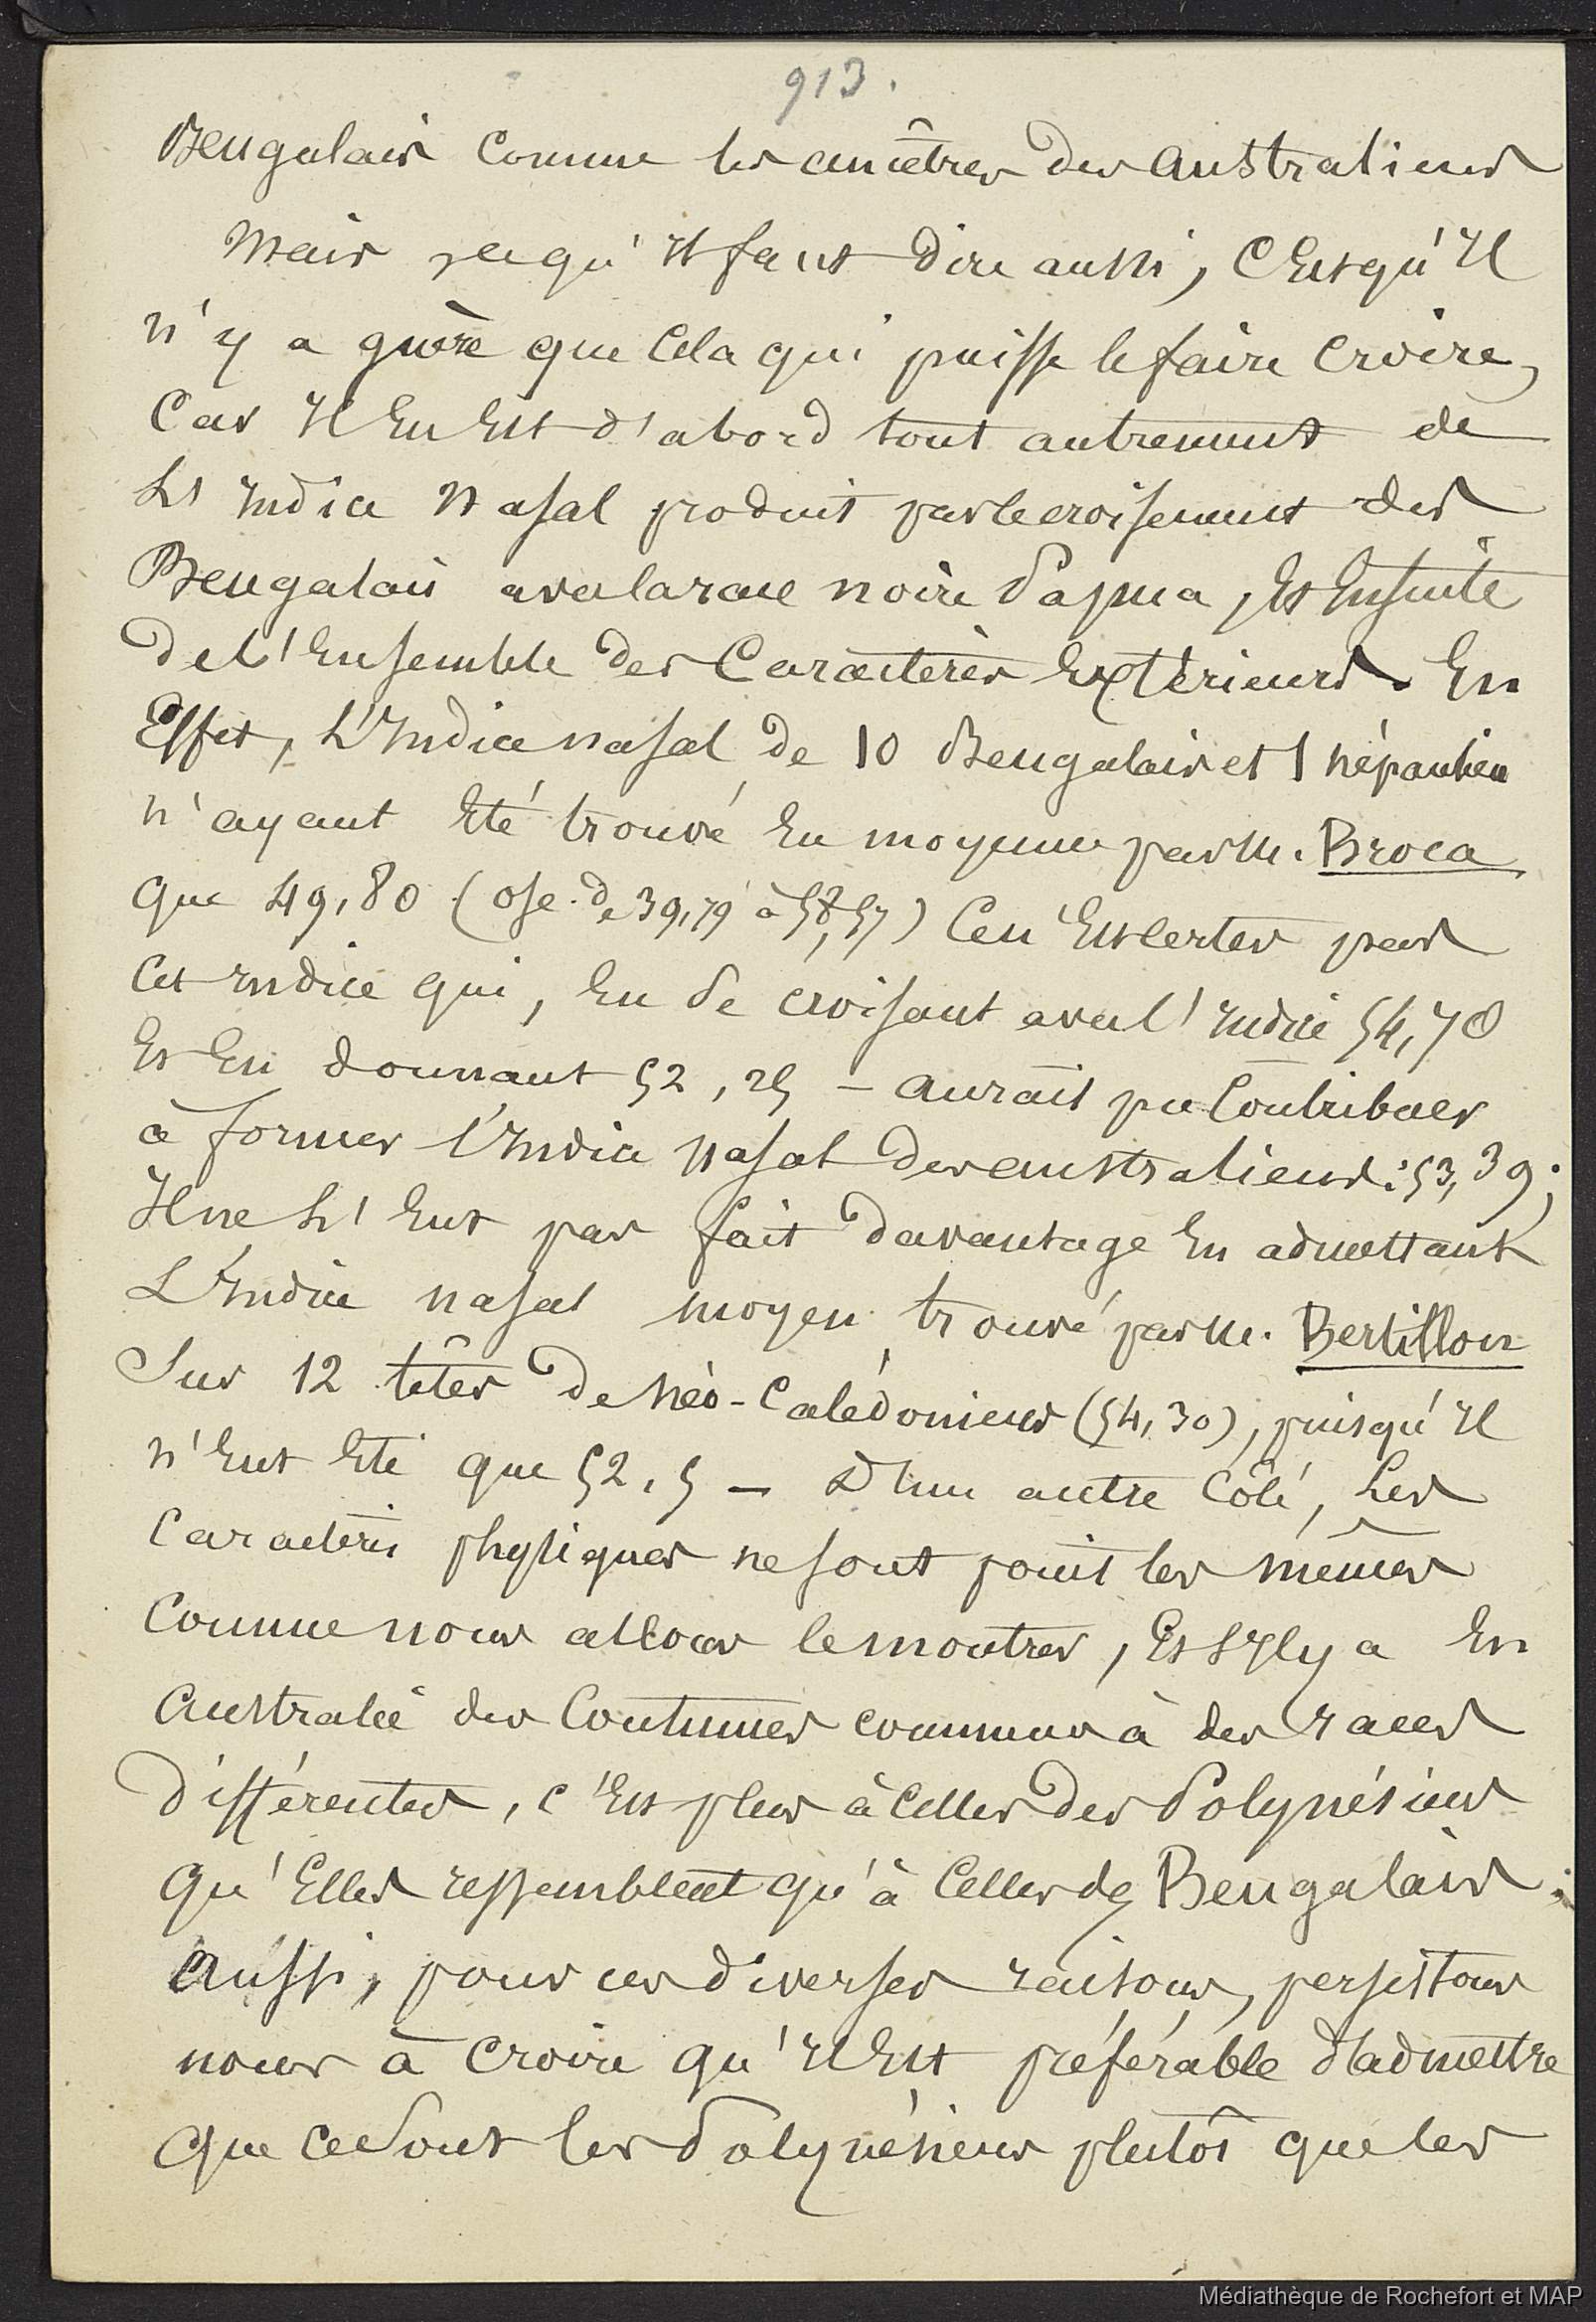 913.
Bengalais comme les ancêtres des Australiens
Mais ce qu'il faut dire aussi, c'est qu'il
n'y a guère que cela qui puisse le faire croire,
Car il en est d'abord tout autrement de
L'indice nasal produit par le croisement des
Bengalais avec la race noire Papua, et ensuite
de l'ensemble des Caractères extérieurs. En
Effet, L'Indice nasal de 10 Bengalais et 1 népaulien
n'ayant été trouvé en moyenne par M. Broca
que 49,80 (osc. de 39,79 à 58,57) Ce n'est certes pas
cet indice qui, en se croisant avec l'indice 54,70
et en donnant 52,25 - aurait pu Contribuer
à former l'Indice nasal des australiens: 53,39;
Il ne L'eut pas fait davantage en admettant
L'Indice nasal moyen trouvé par M. Bertillon
Sur 12 têtes de Néo-Calédoniens (54,30), puisqu'il
n'eut été que 52,5 - D'un autre Côté, Les
Caractères physiques ne sont point les mêmes
Comme nous allons le montrer, et s'il y a en
Australie des Coutumes communes à des races
différentes, c'est plus à celles des Polynésiens
qu'Elles ressemblent qu'à Celles des Bengalais;
Aussi, pour ces diverses raisons, persistons
nous à croire qu'il est préférable d'admettre
que ce sont les Polynésiens plutôt que les
Médiathèque de Rochefort et MAP